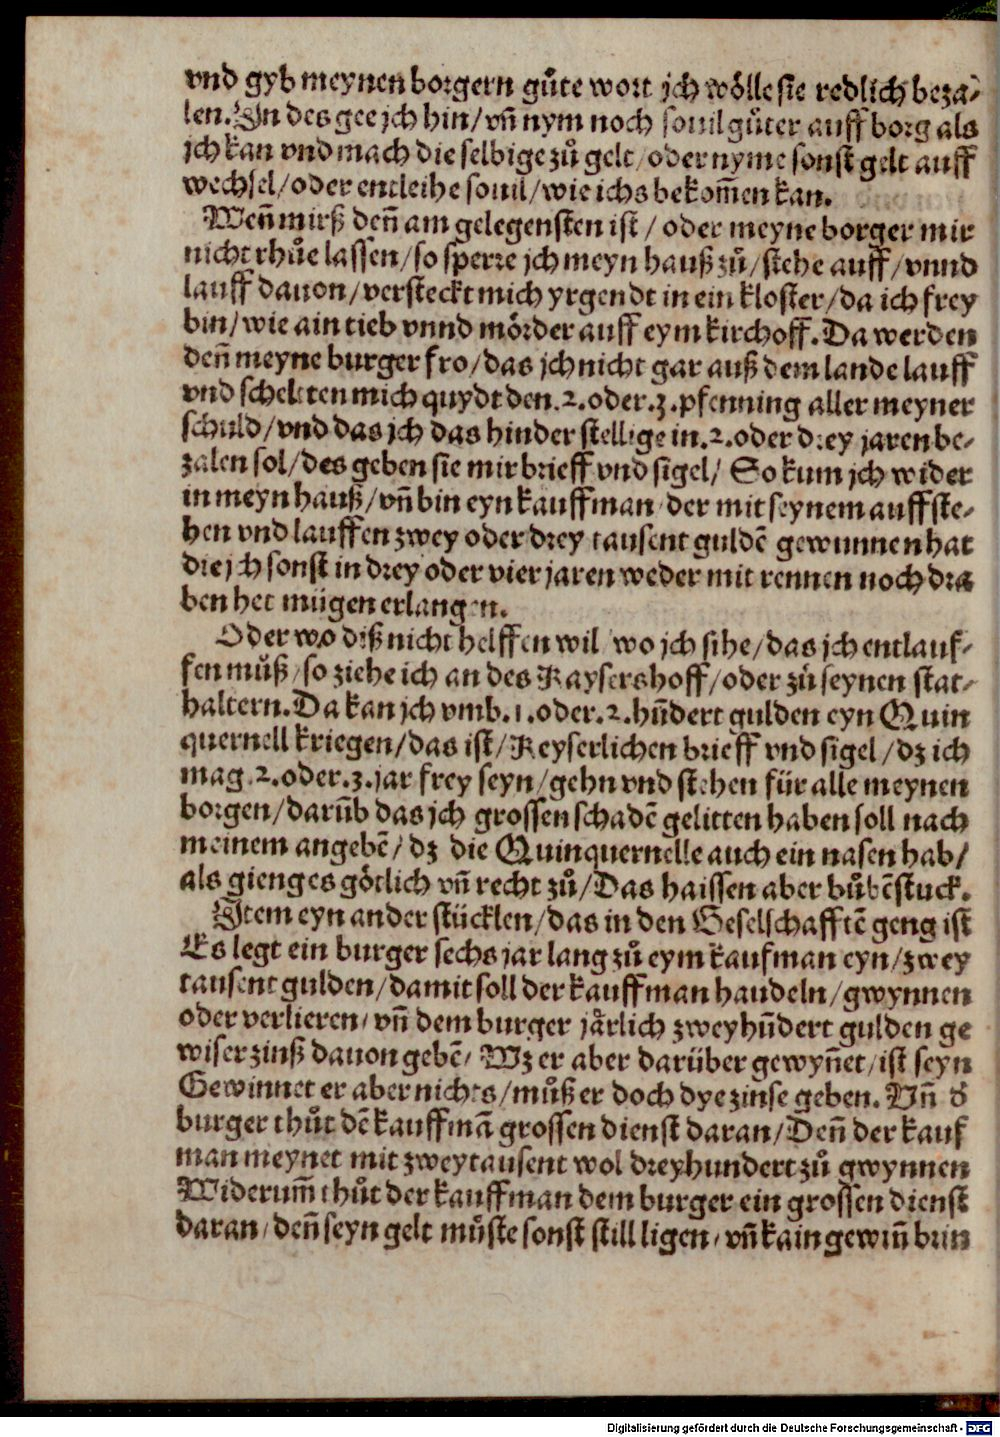 vnd gyb meynen borgern gůte wort jch wölle sie redlich beza-
len. In des gee jch hin/ vñ nym noch souil gůter auff borg als
jch kan vnd mach die selbige zů gelt/ oder nyme sonst gelt auff
wechsel/ oder entleihe souil/ wie ichs bekom̃en kan.
Weñ mirß deñ am gelegensten ist/ oder meyne borger mir
nicht rhůe lassen/ so sperre jch meyn hauß zů/ stehe auff/ vnnd
lauff dauon/ versteckt mich yrgendt in ein kloster/ da ich frey
bin/ wie ain tieb vnnd mörder auff eym kirchoff. Da werden
deñ meyne burger fro/ das jch nicht gar auß dem lande lauff
vnd scheltten mich quydt den .2. oder .3. pfenning aller meyner
schuld/ vnd das jch das hinderstellige in .2. oder drey jaren be-
zalen sol/ des geben sie mir brieff vnd sigel/ So kum jch wider
in meyn hauß/ vñ bin eyn kauffman/ der mit seynem auffste-
hen vnd lauffen zwey oder drey tausent guldẽ gewunnen hat
die jch sonst in drey oder vier jaren weder mit rennen noch dra
ben het mügen erlangen.
Oder wo diß nicht helffen wil/ wo jch sihe/ das jch entlauf-
fen můß/ so ziehe ich an des Kaysershoff/ oder zů seynen stat-
haltern. Da kan jch vmb .1. oder .2. hũdert gulden eyn Quin
quernell kriegen/ das ist/ Keyserlichen brieff vnd sigel/ dz ich
mag .2. oder .3. jar frey seyn/ gehn vnd stehen für alle meynen
borgen/ darũb das jch grossen schadẽ gelitten haben soll nach
meinem angebẽ/ dz die Quinquernelle auch ein nasen hab/
als gienges götlich vñ recht zů/ Das haissen aber bůbẽstuck.
Item eyn ander stücklen/ das in den Geselschafftẽ geng ist
Es legt ein burger sechs jar lang zů eym kaufman eyn/ zwey
tausent gulden/ damit soll der kauffman handeln/ gwynnen
oder verlieren/ vñ dem burger järlich zweyhũdert gulden ge
wiser zinß dauon gebẽ/ Wz er aber darüber gewyñet/ ist seyn
Gewinnet er aber nichts/ můß er doch dye zinse geben. Vñ d̕
burger thůt dẽ kauffmã grossen dienst daran/ Deñ der kauf
man meynet mit zweytausent wol dreyhundert zů gwynnen
Widerum̃ thůt der kauffman dem burger ein grossen dienst
daran/ deñ seyn gelt můste sonst still ligen/ vñ kain gewiñ brin
Digitalisierung gefördert durch die Deutsche Forschungsgemeinschaft - DFG